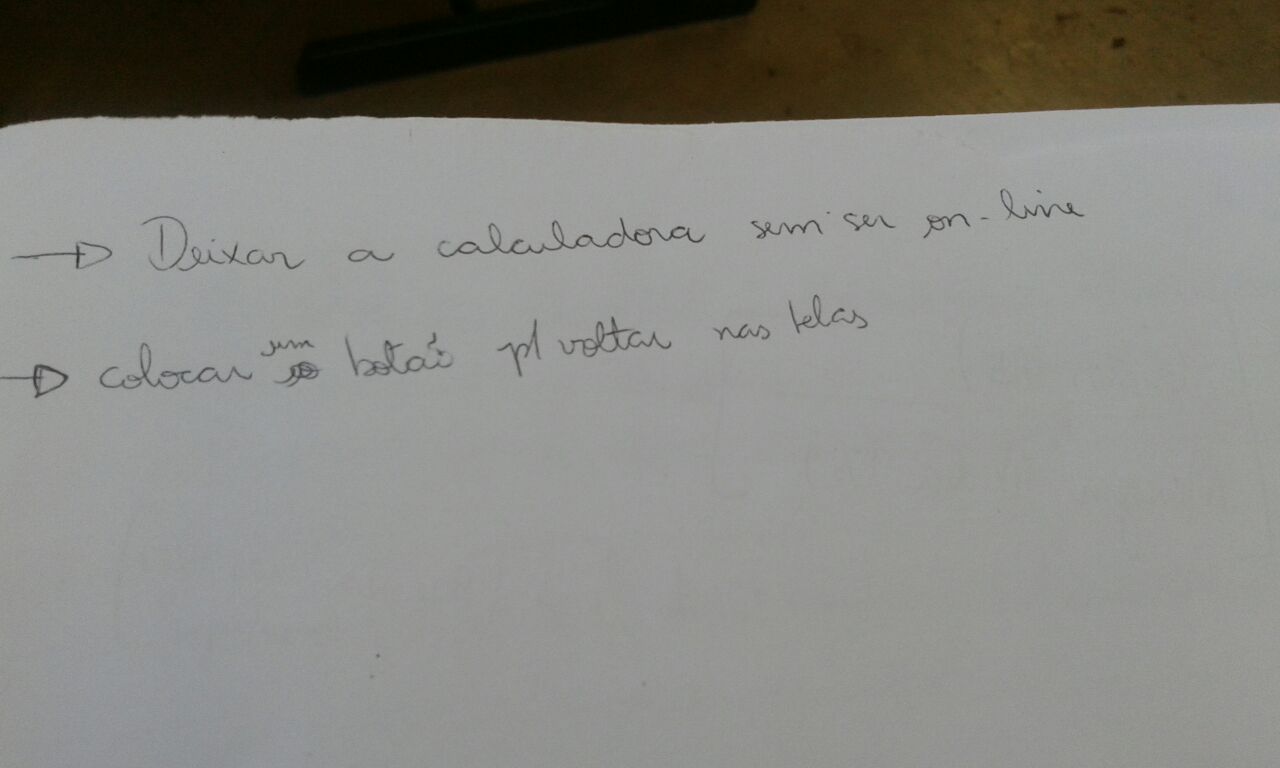 → Deixar a calculadora sem ser on-line
→ colocar um botão p/ voltar nas telas